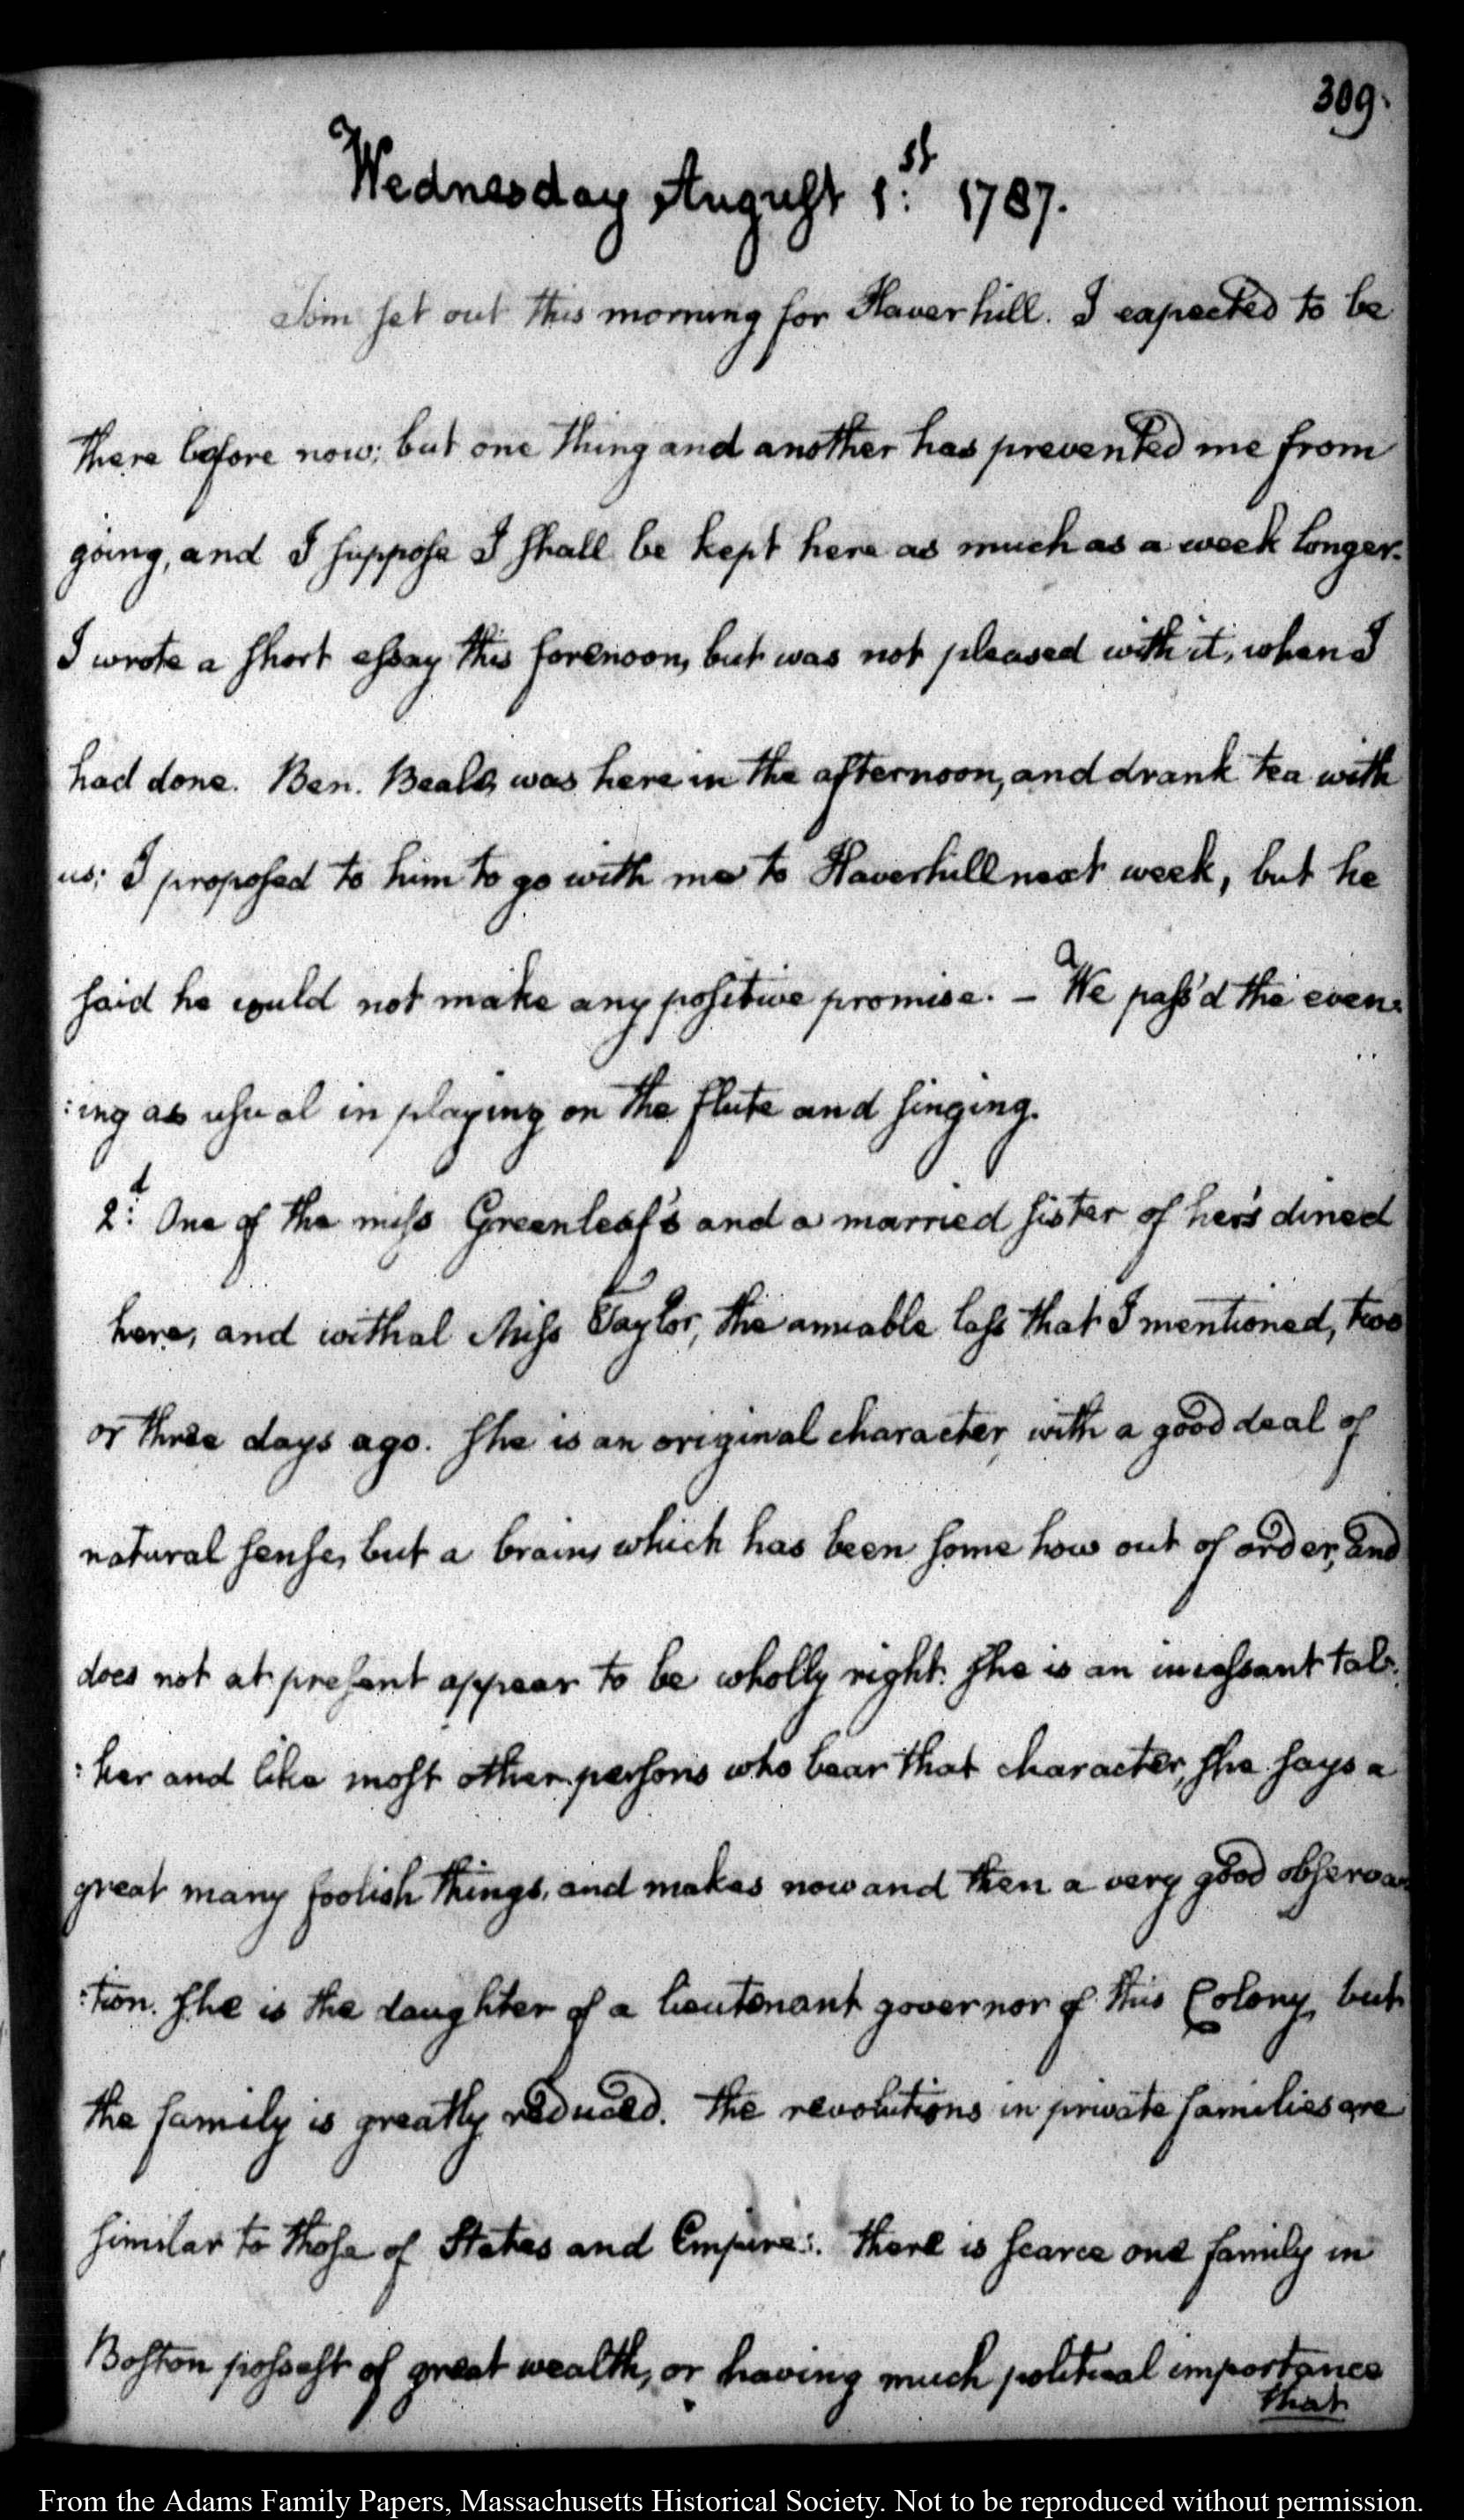 309.
Wednesday August 1:st 1787.
Tom set out this morning for Haverhill. I expected to be
there before now; but one thing and another has prevented me from
going, and I suppose I shall be kept here as much as a week longer.
I wrote a short essay this forenoon, but was not pleased with it, when I
had done. Ben. Beale, was here in the afternoon, and drank tea with
us; I proposed to him to go with me to Haverhill next week, but he
said he could not make any positive promise. — We pass'd the even:
:ing as usual in playing on the flute and singing.
2:d One of the miss Greenleaf's and a married sister of her's dined
here, and withal Miss Taylor, the amiable lass that I mentioned, two
or three days ago. She is an original character, with a good deal of
natural sense, but a brain, which has been some how out of order, and
does not at present appear to be wholly right. She is an incessant tal:
:ker and like most other persons who bear that character, she says a
great many foolish things, and makes now and then a very good observa:
:tion. She is the daughter of a lieutenant governor of this Colony, but
the family is greatly reduced. The revolutions in private families are
similar to those of States and Empires. There is scarce one family in
Boston possest of great wealth, or having much political importance
that
From the Adams Family Papers, Massachusetts Historical Society. Not to be reproduced without permission.